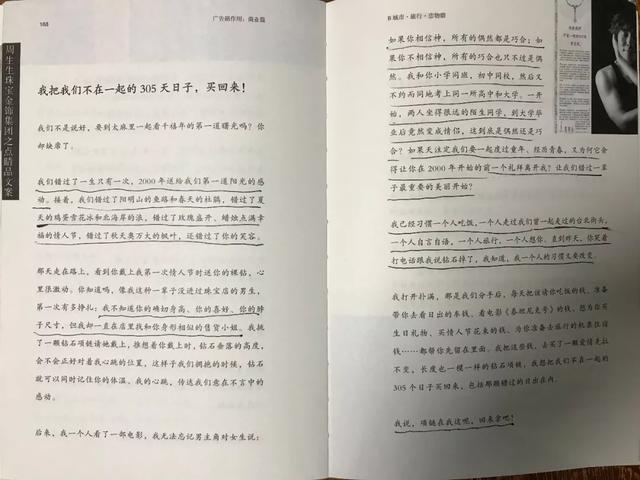 188
广告副作用：商业篇
周生生珠宝金饰集团之点睛品文案
我把我们不在一起的 305 天日子，买回来！
我们不是说好，要到太麻里一起看千禧年的第一道曙光吗？你
却缺席了。
我们错过了一生只有一次，2000 年送给我们第一道阳光的感
动。接着，我们错过了阳明山的鱼路和春天的杜鹃，错过了夏
天的鸡蛋雪花冰和北海岸的浪，错过了玫瑰盛开、蜡烛点满幸
福的情人节，错过了秋天奥万大的枫叶，还错过了你的笑容。
那天走在路上，看到你戴上我第一次情人节时送你的裸钻，心
里很激动。你知道吗，像我这种一辈子没进过珠宝店的男生，
第一次有多挣扎：我不知道你的确切身高、你的喜好、你的脖
子尺寸，但我却一直在店里找和你身形相似的售货小姐。我挑
了一颗钻石项链请她戴上，推想着你戴上时，钻石垂落的高度，
会不会正好对着我心跳的位置，这样子我们拥抱的时候，钻石
就可以同时记住你的体温、我的心跳，传达我们意在不言中的
感动。
后来，我一个人看了一部电影，我无法忘记男主角对女生说：
B 城市·旅行·恋物癖
如果你相信神，所有的偶然都是巧合；如
果你不相信神，所有的巧合也只不过是偶
然。我和你小学同班，初中同校，然后又
不约而同地考上同一所高中和大学。一开
始，两人坐得很远的陌生同学，到大学毕
业后竟然变成情侣，这到底是偶然还是巧
合？如果天注定我们要一起度过童年、经历青春，又为何它会
舍得让你在 2000 年开始的前一个礼拜离开我？让我们错过一辈
子最重要的美丽开始？
我已经习惯一个人吃饭，一个人走过我们曾一起走过的台北街头，
一个人自言自语，一个人旅行，一个人想你。直到那天，你哭着
打电话跟我说钻石掉了，我知道，我一个人的习惯又要改变。
我打开扑满，那是我们分手后，每天把该请你吃饭的钱、准备
带你去看日出的车钱、看电影《泰坦尼克号》的钱、想为你买
生日礼物、买情人节花束的钱、为你准备去旅行的机票住宿
钱……都帮你先留在里面。我把这些钱，去买了一颗爱情克拉
不变，长度也一模一样的钻石项链，我想把我们不在一起的
305 个日子买回来，包括那颗错过的日出在内。
我说，项链在我这呢，回来拿吧！